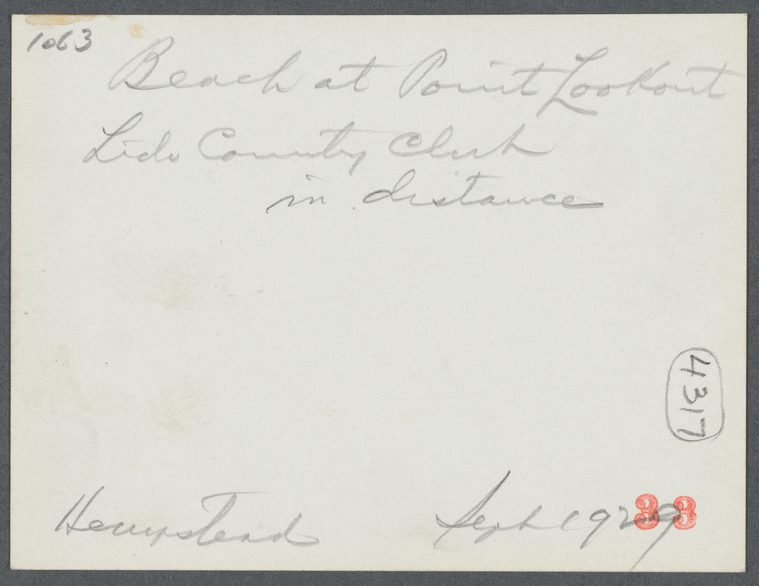 1063
Beach at Point Lookout
Lido Country Club
in distance
4317
Hempstead Sept 1929
33